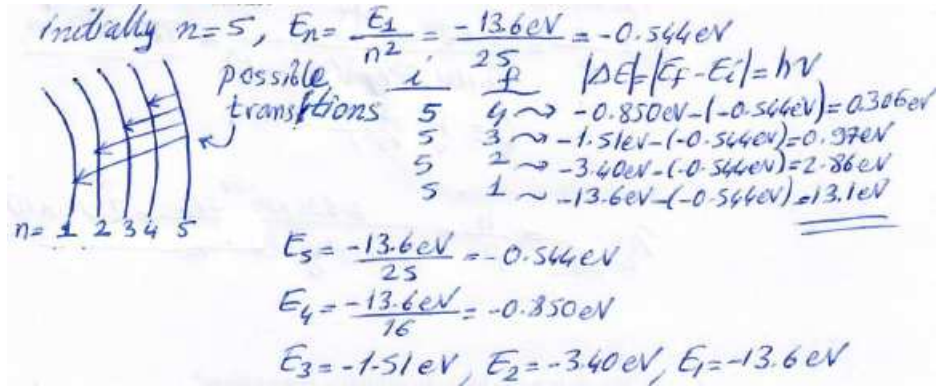 initially n=5, En = E1/n² = -13.6eV/25 = -0.544eV
possible transitions
i f |ΔE|=|Ef-Ei|=hν
5 4 ~> -0.850eV-(-0.544eV)=0.306eV
5 3 ~> -1.51eV-(-0.544eV)=0.97eV
5 2 ~> -3.40eV-(-0.544eV)=2.86eV
5 1 ~ -13.6eV-(-0.544eV)=13.1eV
n= 1 2 3 4 5
E5 = -13.6eV/25 = -0.544eV
E4 = -13.6eV/16 = -0.850eV
E3 = -1.51eV, E2 = -3.40eV, E1 = -13.6eV